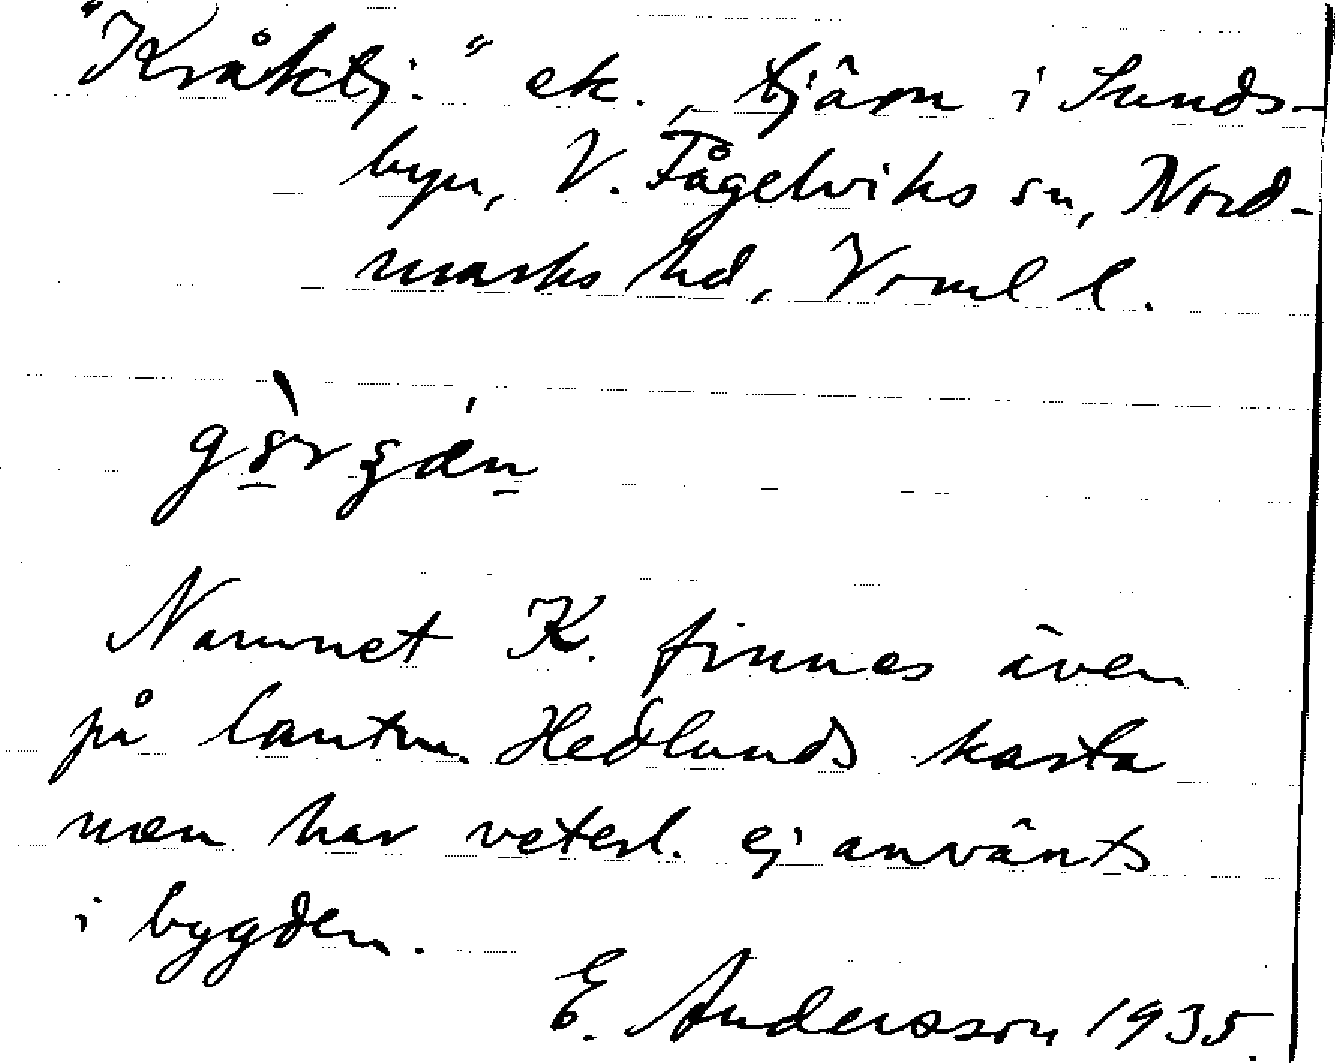 "Kråktj." ek., tjärn i Sunds-
byn, V. Fågelviks sn, Nord-
marks hd, Vrml l.
Namnet K. finnes även
på lantm. Hedlunds karta
men har veterl. ej använts
i bygden.
E. Andersson 1935.